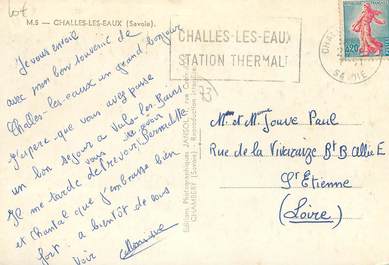 M.S — CHALLES-LES-EAUX (Savoie).
Je vous envoie
avec mon bon souvenir de
Challes-les-eaux un grand bonjour
J'espère que vous avez passé
un bon séjour à Vals-les-Bains
Je me tarde de vous revoir Bernadette
et Chantal que j'embrasse bien
fort. a bientôt de vous
Voir
CHALLES-LES-EAUX
STATION THERMALE
0,20
SAVOIE
73
Editions Photographiques
CHAMBÉRY (Savoie) Reproduction interdite
Mme et Mr Jouve Paul
Rue de la Vivaraize Bt B Allée E
St Etienne
(Loire)